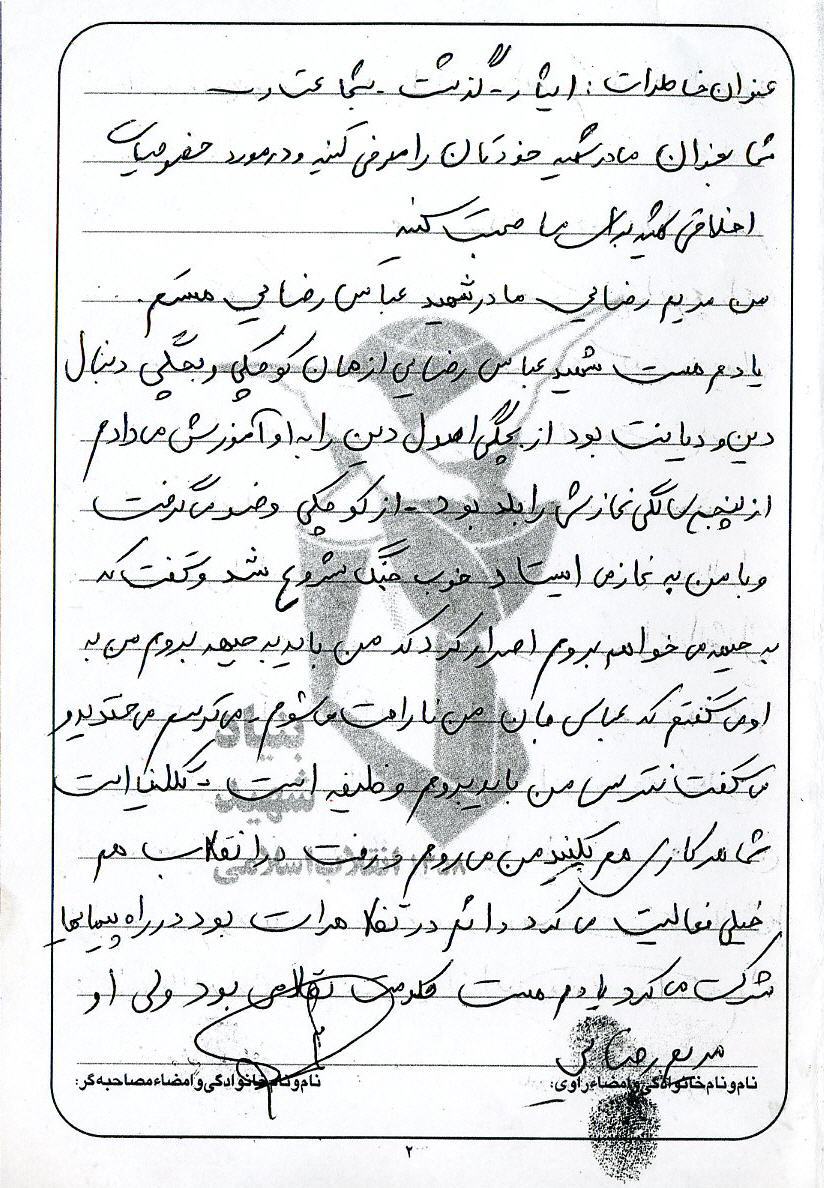 عنوان خاطرات : ایثار - گذشت - شجاعت و ...
شما بعنوان مادر شهید خودتان را معرفی کنید و در مورد خصوصیات
اخلاقی شهید برای ما صحبت کنید
من مریم رضایی مادر شهید عباس رضایی هستم.
یادم هست شهید عباس رضایی از همان کوچکی و بچگی دنبال
دین و دیانت بود از بچگی اصول دین را به او آموزش می دادم
از پنج سالگی نمازش را بلد بود - از کوچکی وضو می گرفت
و با من به نماز می ایستاد خوب جنگ شروع شد و گفت که
به جبهه می خواهم بروم اصرار کرد که من باید به جبهه بروم من به
او می گفتم که عباس جان من ناراحت می شوم - می ترسم می خندید و
می گفت نترس من باید بروم وظیفه است - تکلیف است
شما هر کاری هم بکنید من می روم و رفت در انقلاب هم
خیلی فعالیت می کرد دائم در تظاهرات بود در راه پیمایی ها
شرکت می کرد یادم هست حکومت نظامی بود ولی او
مریم رضایی
نام و نام خانوادگی و امضاء راوی: نام و نام خانوادگی و امضاء مصاحبه گر:
بنیاد
شهید
انقلاب اسلامی
۲